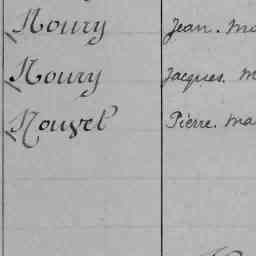 Noury Jean. Ma
Noury Jacques. M
Nouvel Pierre. Ma